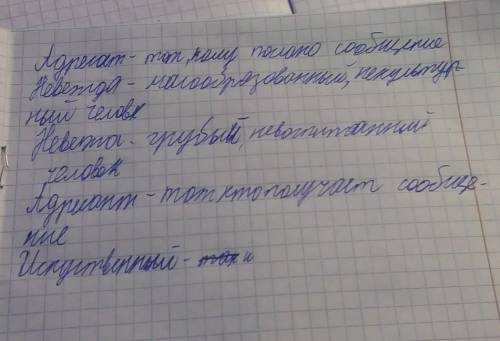 Адресат - тот, кому послано сообщение
Невежда - малообразованный, некультур-
ный человк
Невежа - грубый, невоспитанний
человок
Адресант - тот кто получает сообще-
ние
Искуственный - и